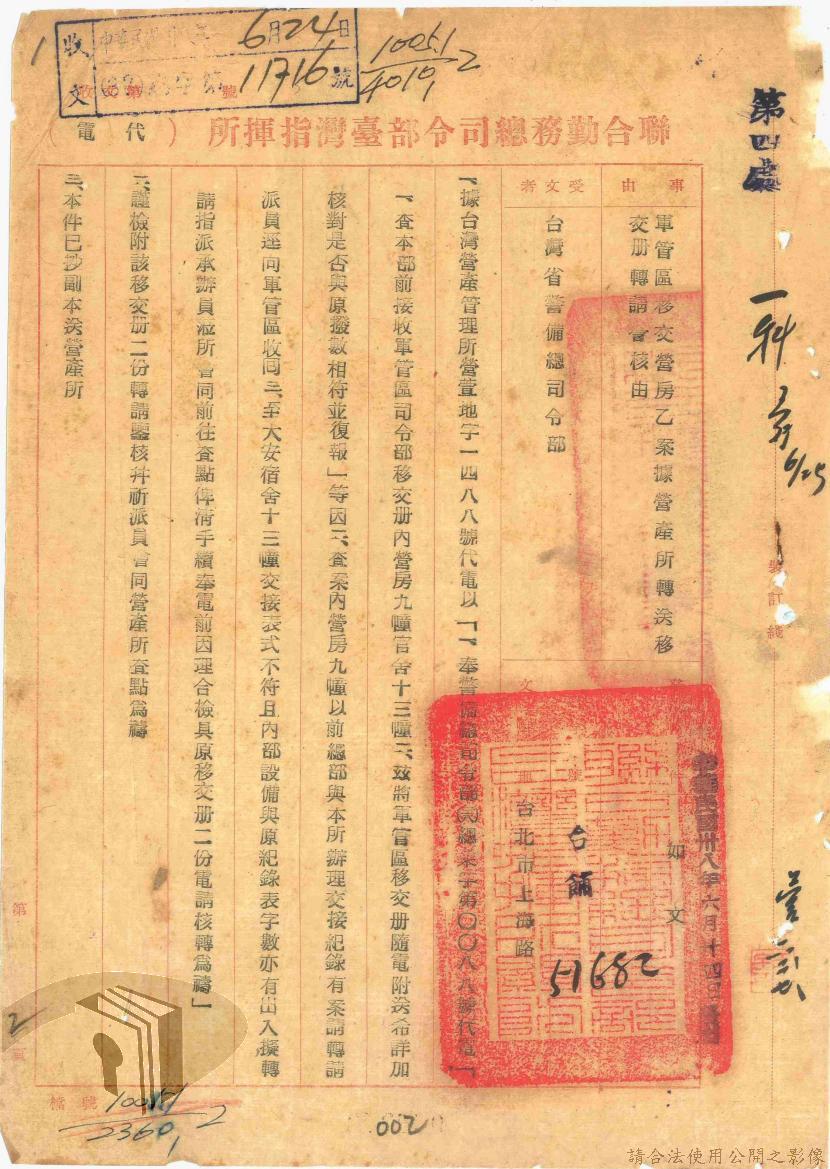 收文
6月24日
(38)
收文 字第11716號
10051
4010,2
1
聯合勤務總司令部臺灣指揮所(代電)
第四處
一科
6/25
裝訂線
事由
軍管區移交營房乙案據營產所轉送移
交册轉請會核由
受文者
台灣省警備總司令部
如文
中華民國卅八年六月十四日
台舖
51682
台北市上海路
一、據台灣營產管理所營萱地字一四八八號代電以「一、奉警備總司令部(民)總菜字第〇〇八八號代電「
一、查本部前接收軍管區司令部移交册內營房九幢官舍十三幢二、茲將軍管區移交册隨電附送希詳加
核對是否與原撥數相符並復報」等因二、查案內營房九幢以前總部與本所辦理交接紀錄有案請轉請
派員逕向軍管區收回三、至大安宿舍十三幢交接表式不符且內部設備與原紀錄表字數亦有出入擬轉
請指派承辦員蒞所會同前往查點俾清手續奉電前因理合檢具原移交册二份電請核轉為禱」
二、謹檢附該移交册二份轉請鑒核并祈派員會同營產所查點為禱
三、本件已抄副本送營產所
第
頁
2
檔號
10051
2360,2
002
請合法使用公開之影像